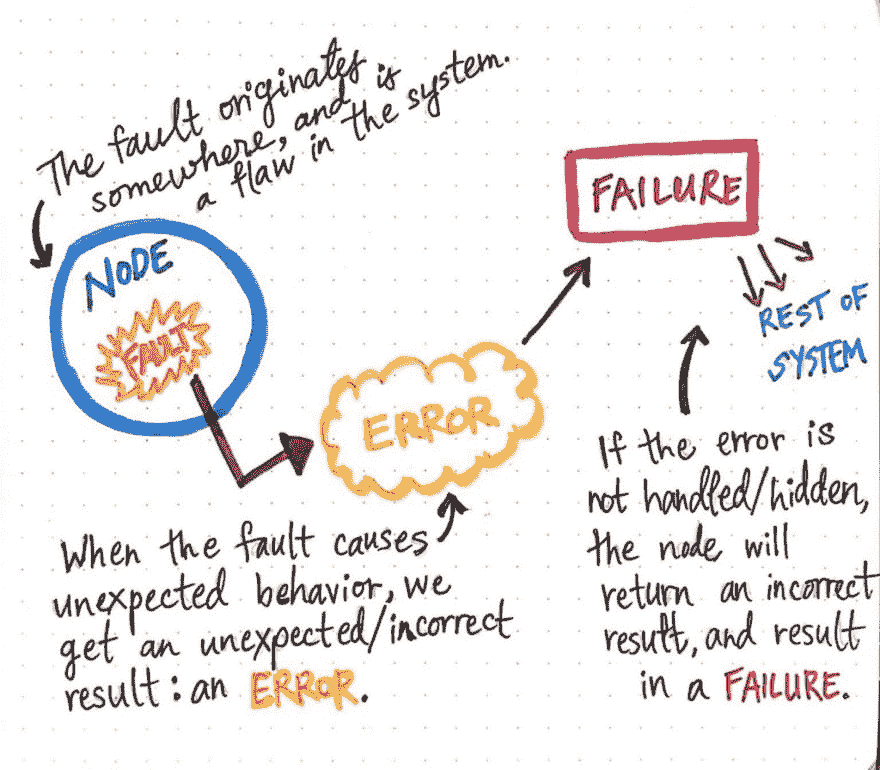 The fault originates
somewhere, and is
a flaw in the system.
NODE
FAULT
ERROR
FAILURE
REST OF
SYSTEM
When the fault causes
unexpected behavior, we
get an unexpected/incorrect
result: an ERROR.
If the error is
not handled/hidden,
the node will
return an incorrect
result, and result
in a FAILURE.